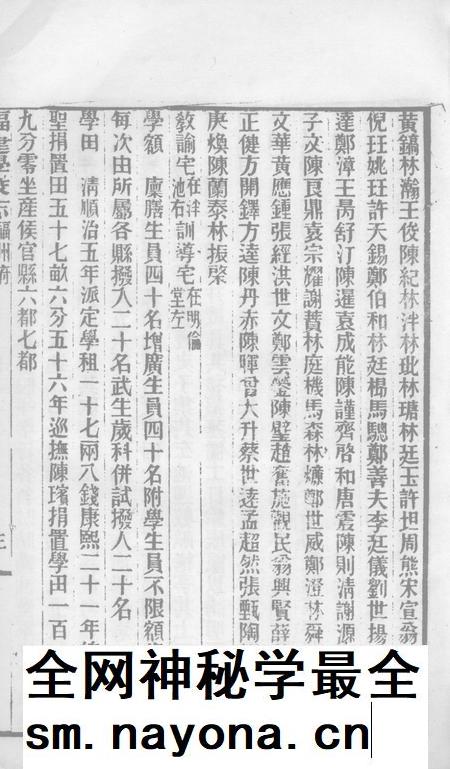 黃鎬林瀚王俊陳紀林泮林玭林瑭林廷玉許坦周熊宋宣翁
倪玨姚玨許天錫鄭伯和林廷㭿馬驄鄭善夫李廷儀劉世揚
達鄭漳王昺舒汀陳暹袁成能陳謹齊啓和唐震陳則清謝源
子文陳良鼎袁宗耀謝蕡林庭機馬森林爌鄭世威鄭澄林舜
文華黃應鍾張經洪世文鄭雲鎣陳璧趙奮施觀民翁興賢薛
正健方開鐸方逵陳丹赤陳暉曾大升蔡世逵孟超然張甄陶
庚煥陳蘭泰林振棨
教諭宅在泮池右訓導宅在明倫堂左
學額 廩膳生員四十名增廣生員四十名附學生員不限額
每次由所屬各縣撥入二十名武生歲科併試撥入二十名
學田 清順治五年派定學租一十七兩八錢康熙二十一年
聖捐置田五十七畝六分五十六年巡撫陳璸捐置學田一百
九分零坐産侯官縣六都七都
福建學
全网神秘学最全
sm.nayona.cn